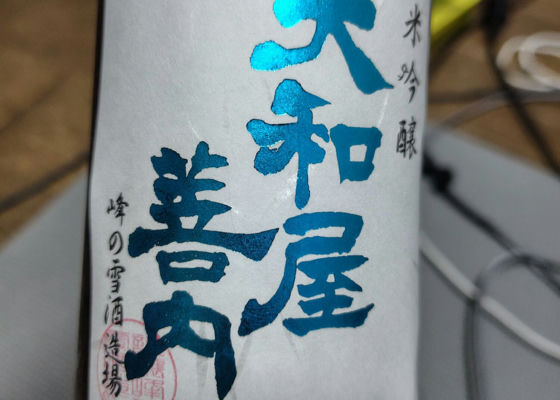 米吟醸
大和屋
善内
峰の雪酒造場